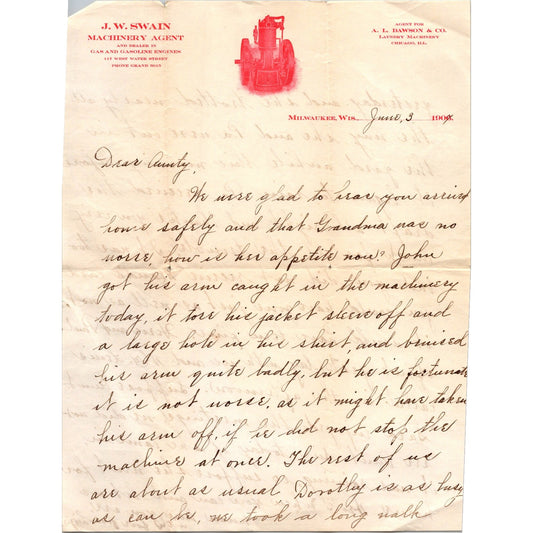 J. W. SWAIN
MACHINERY AGENT
AND DEALER IN
GAS AND GASOLINE ENGINES
117 WEST WATER STREET
PHONE GRAND
AGENT FOR
A. L. DAWSON & CO.
LAUNDRY MACHINERY
CHICAGO, ILL.
MILWAUKEE, WIS. June, 3 190
Dear Aunty.
We were glad to hear you arrived
home safely and that Grandma was no
worse, how is her appetite now? John
got his arm caught in the machinery
today, it tore his jacket sleeve off and
a large hole in his shirt, and bruised
his arm quite badly, but he is fortunate
it is not worse, as it might have taken
his arm off, if he did not stop the
machine at once. The rest of us
are about as usual, Dorothy is as busy
as can be, we took a long walk